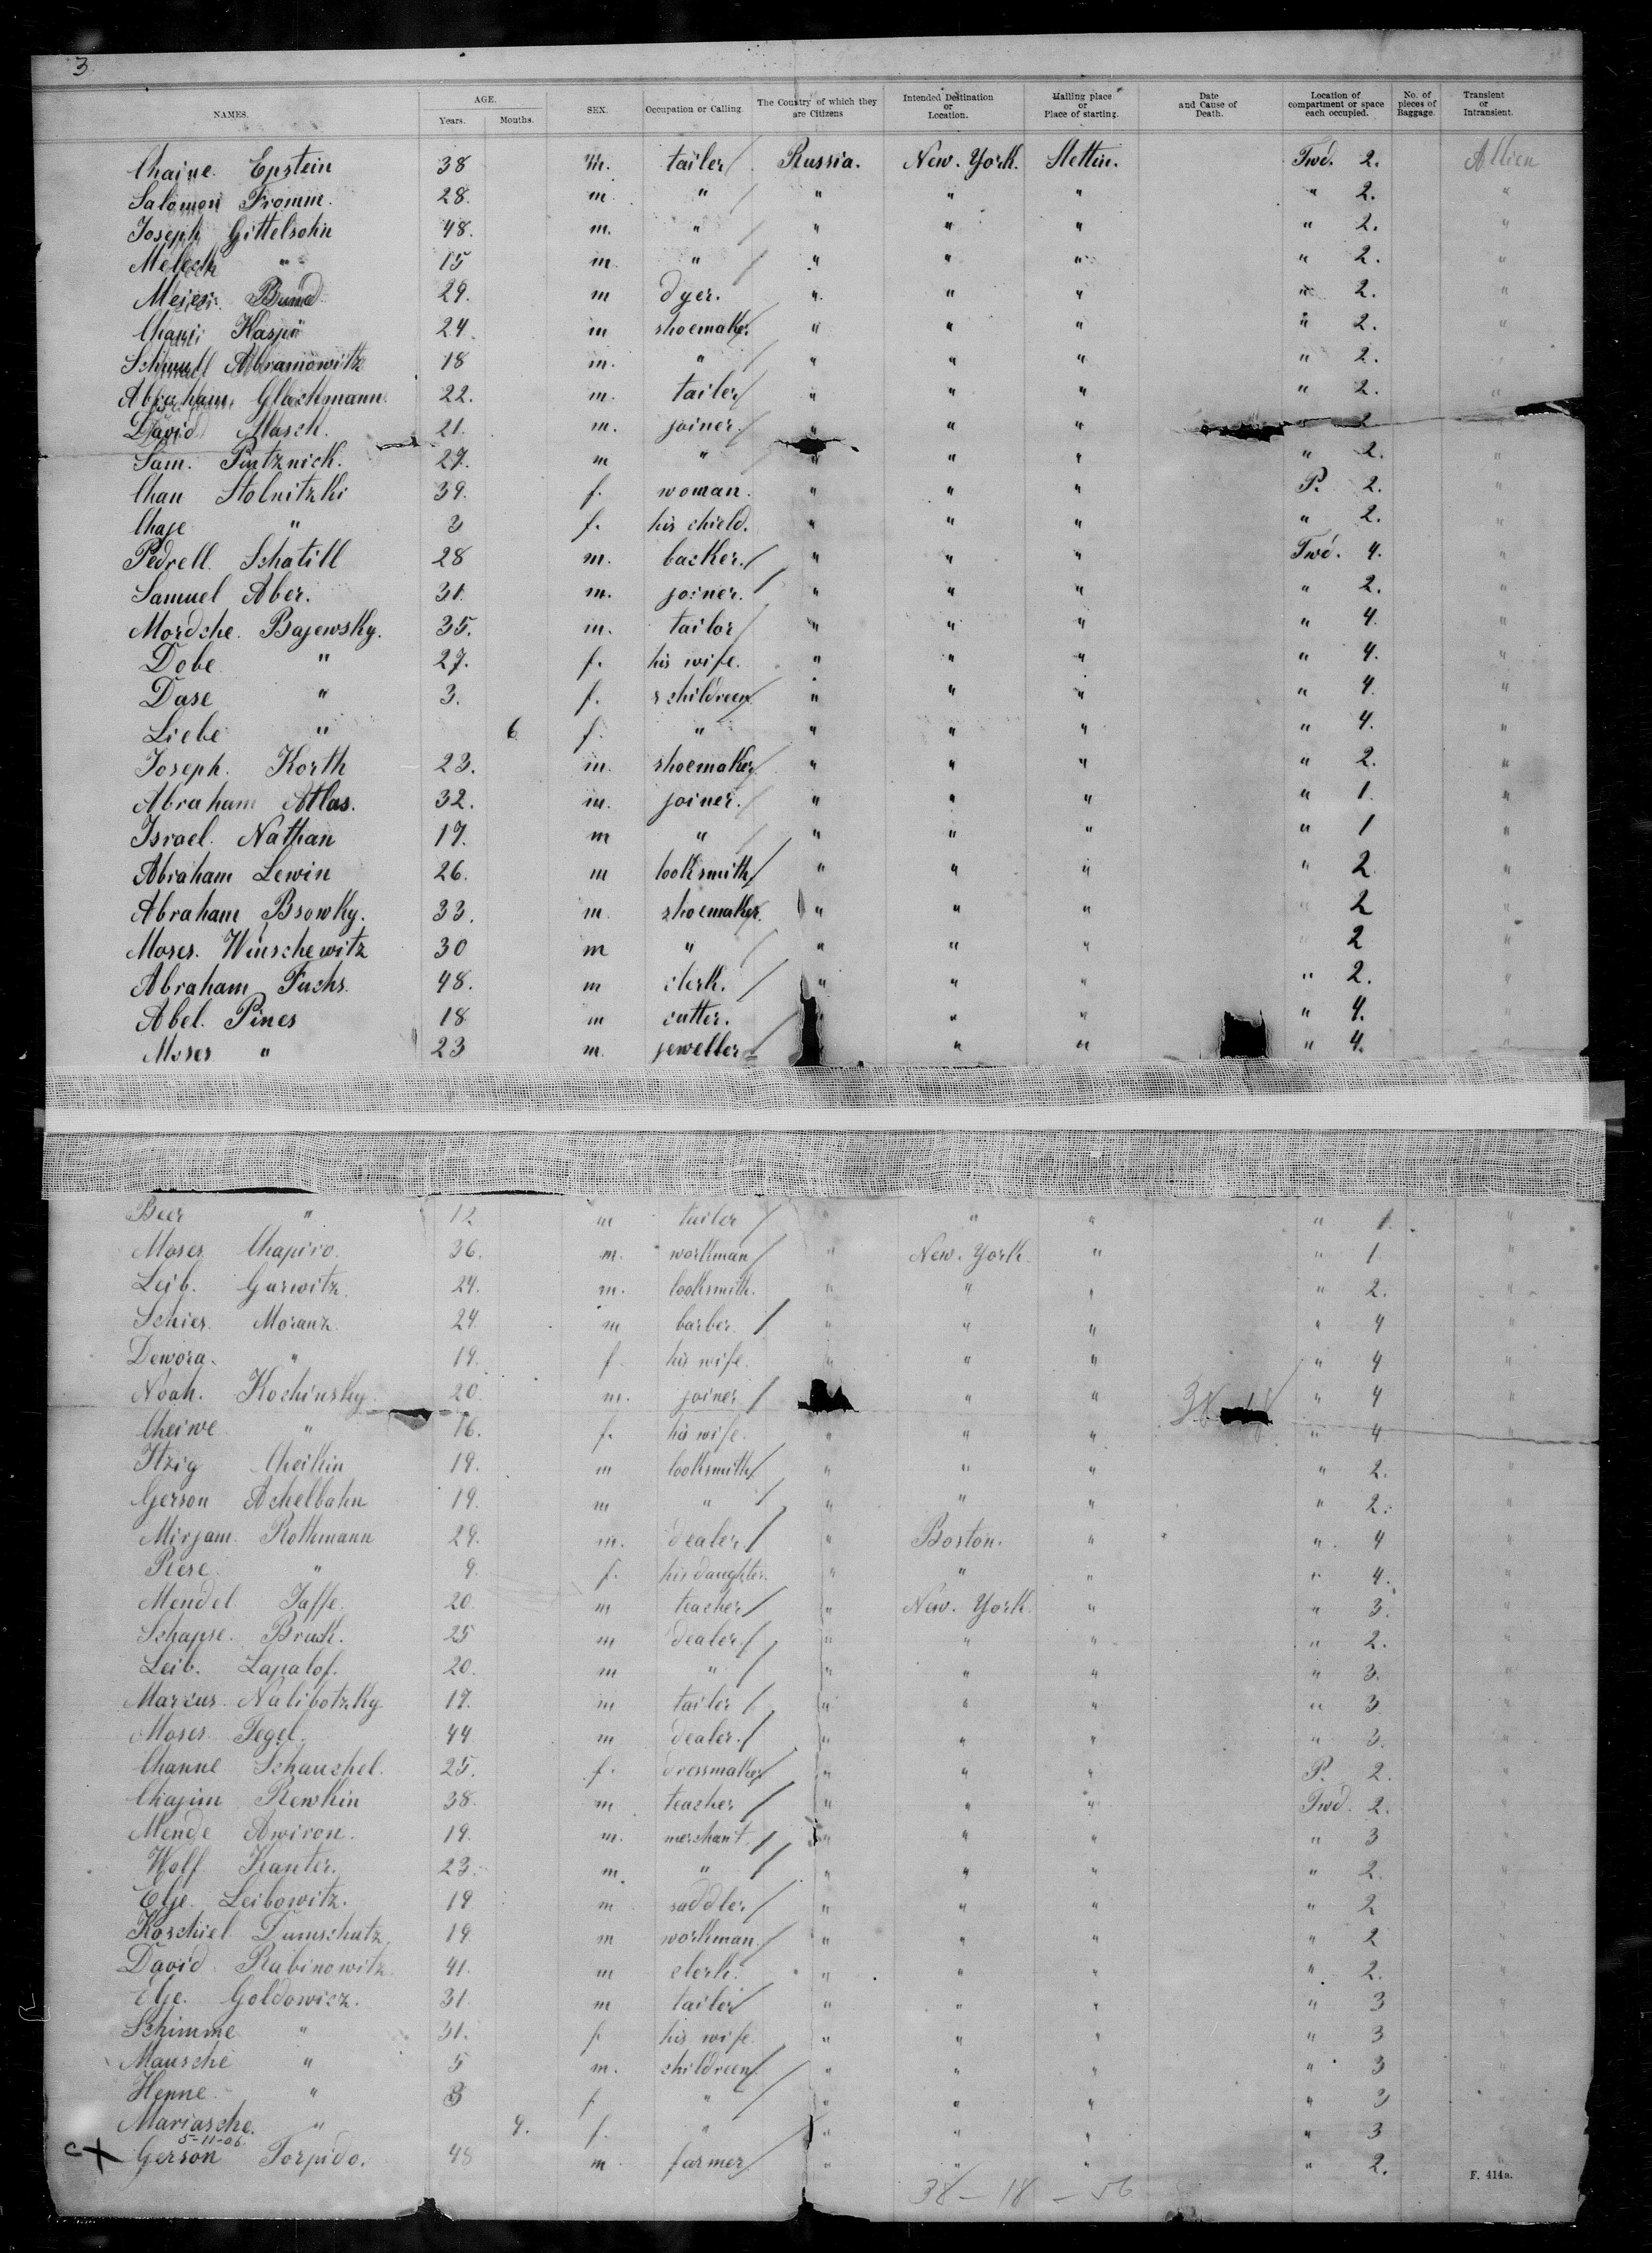 3
NAMES. AGE. Years. Months. SEX. Occupation or Calling. The Country of which they are Citizens Intended Destination or Location. Mailing place or Place of starting. Date and Cause of Death. Location of compartment or space each occupied. No. of pieces of Baggage. Transient or Intransient.
Chaine Epstein 38 m. tailer Russia. New. York. Stettin. Twd. 2. Allien
Salomon Fromm. 28. m " " " " " 2. "
Joseph Gittelsohn 48. m. " " " " " 2. "
Melech " 15 m. " " " " " 2. "
Meier Bund 29. m dyer. " " " " 2. "
Kaspi 24. m shoemaker " " " " 2. "
Schmull Abramowitz 18 m. " " " " " 2. "
Abraham Glachmann 22. m. tailer " " " " 2. "
David Masch. 21. m. joiner. " " " " 2 "
Sam. Putznick. 27. m " " " " " 2. "
Chan Stolnitzki 39. f. woman. " " " P. 2. "
Chaje " 3 f. his chield. " " " " 2. "
Pedrell Schatill 28 m. backer. " " " Twd. 4. "
Samuel Aber. 31. m. joiner. " " " " 2. "
Mordche Bajewsky. 35. m. tailor " " " " 4. "
Dobe " 27. f. his wife. " " " " 4. "
Dase " 3. f. schildreen " " " " 4. "
Liebe " 6 f. " " " " " 4. "
Joseph. Korth 23. m. shoemaker " " " " 2. "
Abraham Atlas. 32. m. joiner. " " " " 1. "
Israel. Nathan 17. m " " " " " 1 "
Abraham Lewin 26. m looksmith " " " " 2 "
Abraham Bsowky. 33. m. shoemaker " " " " 2 "
Moses. Winschewitz 30 m " " " " " 2 "
Abraham Fuchs. 48. m clerk. " " " " 2. "
Abel. Pines 18 m cutter. " " " 4. "
Moses " 23 m. jeweller " " " 4. "
Beer " 12 m tailer " " " " 1. "
Moses Chapiro. 36. m. workman " New. York. " " 1. "
Leib. Gurwitz 24. m. looksmith. " " " " 2. "
Schier Moranz. 24. m barber. " " " " 4 "
Dewora. " 19. f. his wife. " " " " 4 "
Noah. Kochinsky 20 m. joiner " " " 4 "
Cheiwe " 16. f. his wife. " " " " 4 "
Itzig Cheikin 19. m looksmith " " " " 2. "
Gerson Achelbahn 19. m " " " " " 2. "
Mirjam. Rothmann 29. m. dealer. " Boston. " " 4 "
Rese " 9. f. his daughter. " " " " 4. "
Mendel. Jaffe. 20. m teacher " New. York. " " 3. "
Schapse. Bruck. 25 m dealer. " " " " 2. "
Leib. Lapatof. 20. m " " " " " 3. "
Marcus. Nalibotzky 17. m tailer " " " " 3 "
Moses. Tegel. 44 m dealer. " " " " 3. "
Channe Schauchel. 25. f. dressmaker " " " P. 2. "
Chajim Rewkin 38. m teacher " " " Twd. 2. "
Mende Awiron. 19. m. merchant. " " " " 3 "
Wolf Kanter. 23. m. " " " " " 2. "
Elje. Leibowitz. 19 m saddler " " " " 2 "
Koschiel Dumschutz. 19. m workman. " " " " 2 "
David. Rabinowitz 41. m clerk. " " " " 2. "
Elje. Goldowicz. 31 m tailer " " " " 3 "
Schimme " 31. f his wife. " " " " 3 "
Mausche " 5 m. childreen " " " " 3 "
Henne " 3 f " " " " " 3 "
Mariasche. " 9. f. " " " " " 3 "
5-11-06.
Gerson Torpido. 48 m farmer " " " " 2.
38 - 18 - 56
F. 414a.